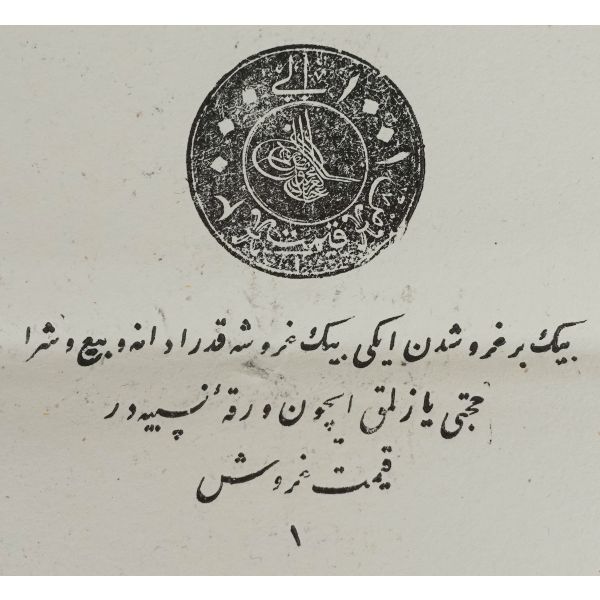 ١٠٠١ الی ٢٠٠٠
قیمت
١
بیك بر غروشدن ایكی بیك غروشه قدر ادانه و بیع و شرا
حجتی یازلمق ایچون ورقهٔ نسبیه در
قیمت غروش
١